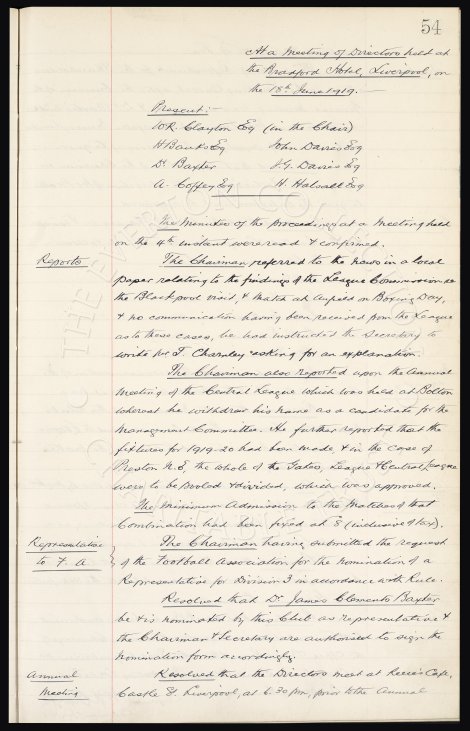 54
At a Meeting of Directors held at
the Bradford Hotel, Liverpool, on
the 18th June 1919. —
Present:-
W.R. Clayton Esq (in the Chair)
H Banks Esq John Davies Esq
Dr Baxter J.G. Davies Esq
A. Coffey Esq H. Halsall Esq
The Minutes of the proceedings at a Meeting held
on the 4th instant were read & confirmed.
Reports The Chairman referred to the news in a local
paper relating to the findings of the League Commission re
the Blackpool visit, & match at Anfield on Boxing Day,
& no communication having been received from the League
as to these cases, he had instructed the Secretary to
write Mr T. Charnley asking for an explanation.
The Chairman also reported upon the Annual
Meeting of the Central League which was held at Bolton
whereat he withdrew his name as a candidate for the
Management Committee. He further reported that the
fixtures for 1919-20 had been made & in the case of
Preston N.E, the whole of the Gates, League & Central League
were to be pooled & divided, which was approved.
The minimum Admission to the Matches of that
Combination had been fixed at (inclusive of tax).
Representative The Chairman having submitted the request
to F. A. of the Football Association for the nomination of a
Representative for Division 3 in accordance with Rule.
Resolved that Dr James Clement Baxter
be & is nominated by this Club as representative &
the Chairman & Secretary are authorised to sign the
nomination form accordingly.
Annual Resolved that the Directors meet at Reece's Cafe,
Meeting Castle St. Liverpool, at 6.30 pm, prior to the Annual